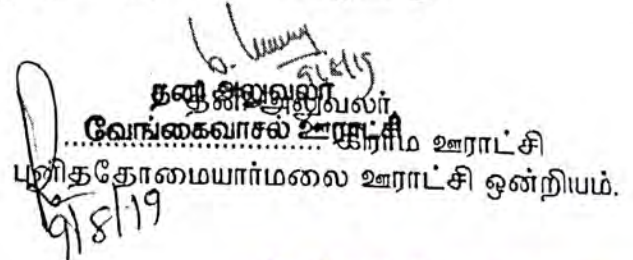 9/8/19
தனி அலுவலர்
தனி அலுவலர்,
வேங்கைவாசல் ஊராட்சி
.............................. கிராம ஊராட்சி
புனிததோமையார்மலை ஊராட்சி ஒன்றியம்.
9/8/19